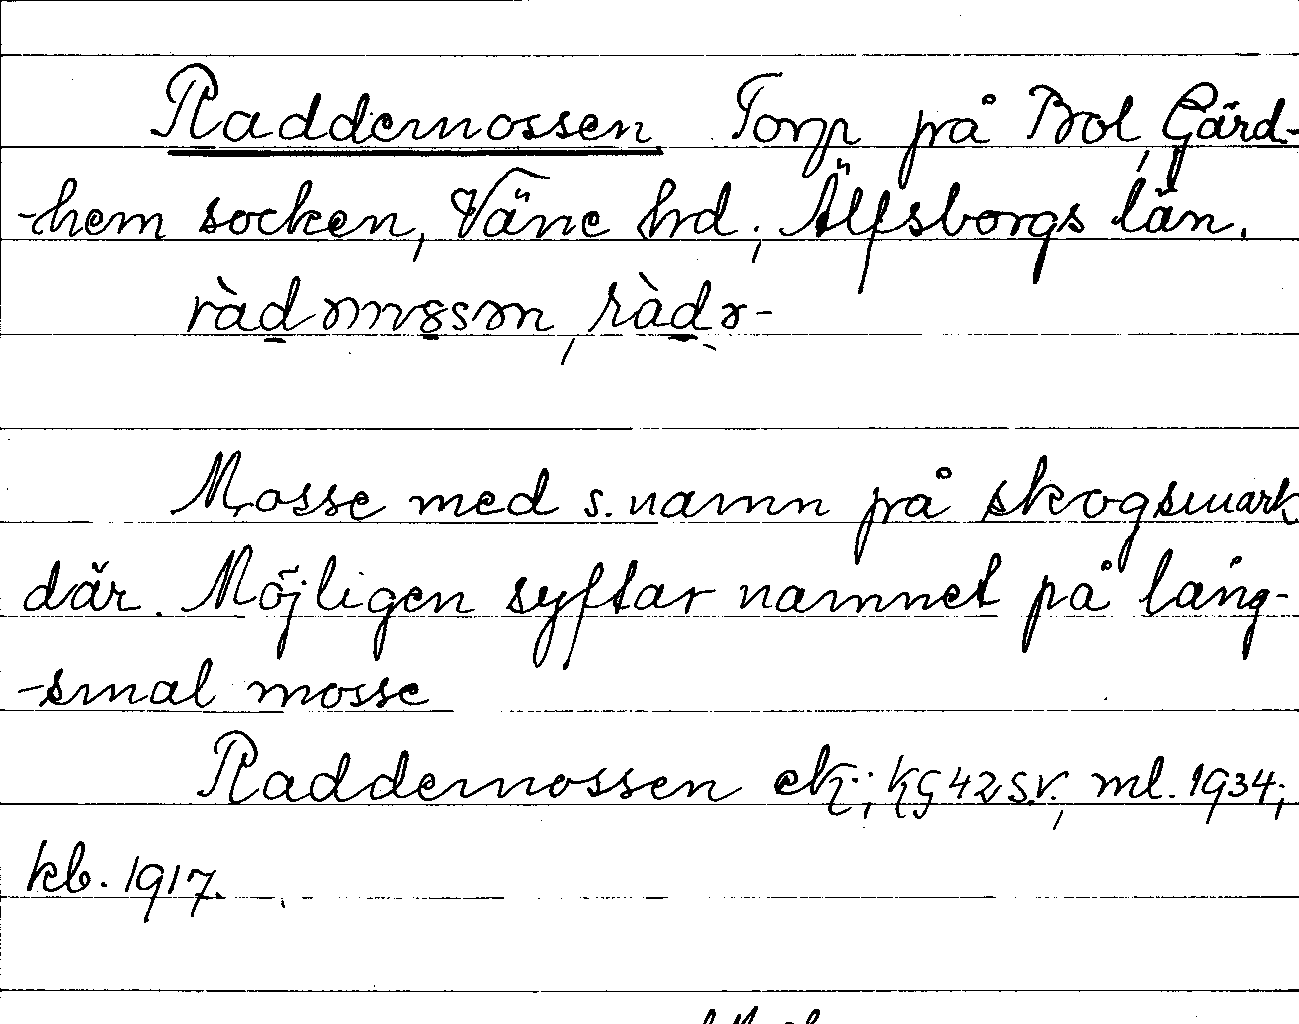 Raddemossen Torp på Bol, Gärd-
-hem socken, Väne hd; Älfsborgs län.
Mosse med s. namn på skogsmark
där. Möjligen syftar namnet på lång-
-smal mosse
Raddemossen ek; kg 42 s.v., ml. 1934;
kb. 1917.